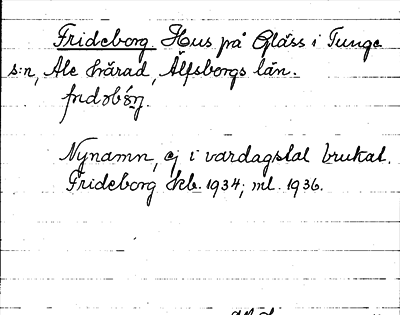 Frideborg. Hus på Gläss i Tunge
s:n, Ale härad, Älfsborgs län.
Nynamn, ej i vardagstal brukat.
Frideborg skb. 1934; ml. 1936.